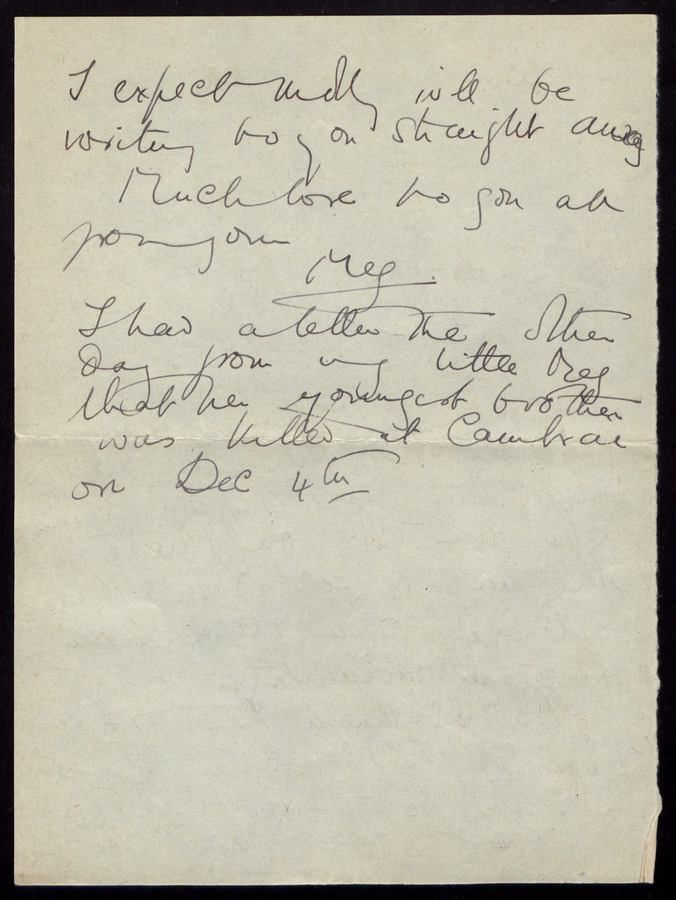 I expect Molly will be
writing to you straight away
Much love to you all
from your
Meg.
I had a letter the other
day from my little Meg
that her youngest brother
was killed at Cambrai
on Dec 4th